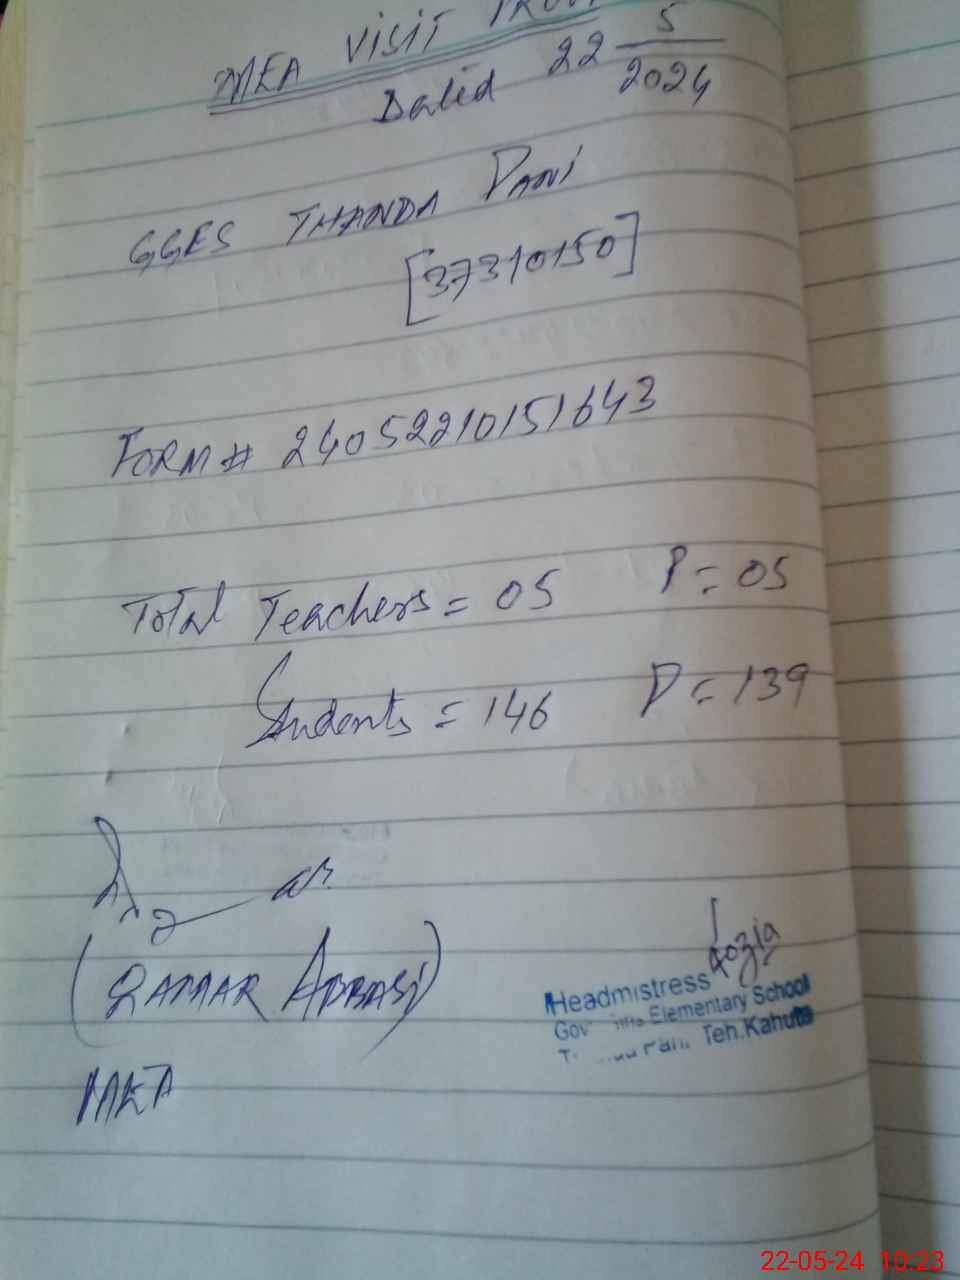 MEA VISIT PROOF
Dated 22 5/2024
GGES THANDA PANI
[37310150]
FORM # 24052210151643
Total Teachers = 05 P = 05
Students = 146 P = 139
(QAMAR ABBASI)
MEA
Fozia
Headmistress
Elementary School
Teh. Kahuta
22-05-24 10:23